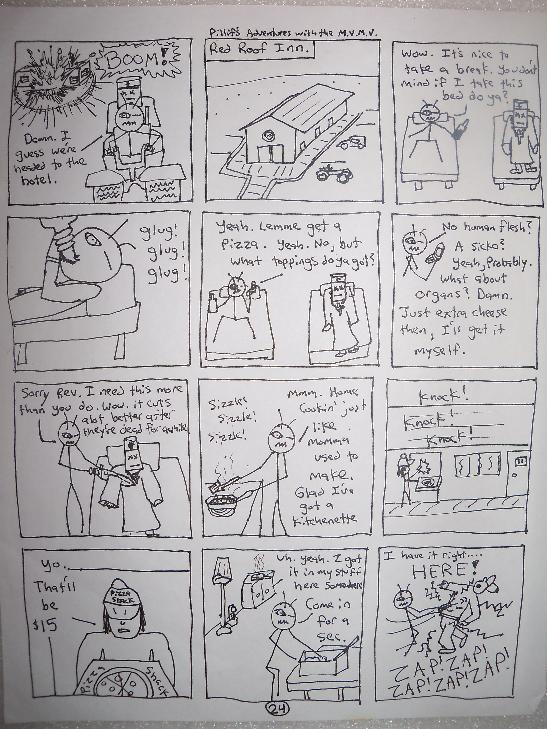 Pillof's Adventures with the M.V.M.V.
BOOM!
Damn. I
guess we're
headed to the
hotel.
Red Roof Inn.
Wow. It's nice to
take a break. You don't
mind if I take this
bed do ya?
glug!
glug!
glug!
Yeah. Lemme get a
Pizza. Yeah. No, but
what toppings do ya got?
No human flesh?
A sicko?
Yeah, Probably.
what about
organs? Damn.
Just extra cheese
then, I'll get it
myself.
Sorry Rev. I need this more
than you do. Wow. it cuts
a bit better after
they're dead for awhile
Sizzle!
Sizzle!
Sizzle!
Mmm. Home
Cookin' just
like
momma
used to
make.
Glad I've
got a
kitchenette
Knock!
Knock!
Knock!
Yo.
That'll
be
$15
PIZZA
SHACK
Pizza
Shack
Uh. yeah. I got
it in my stuff
here somewhere
Come in
for a
sec.
I have it right....
HERE!
ZAP! ZAP!
ZAP! ZAP! ZAP!
24